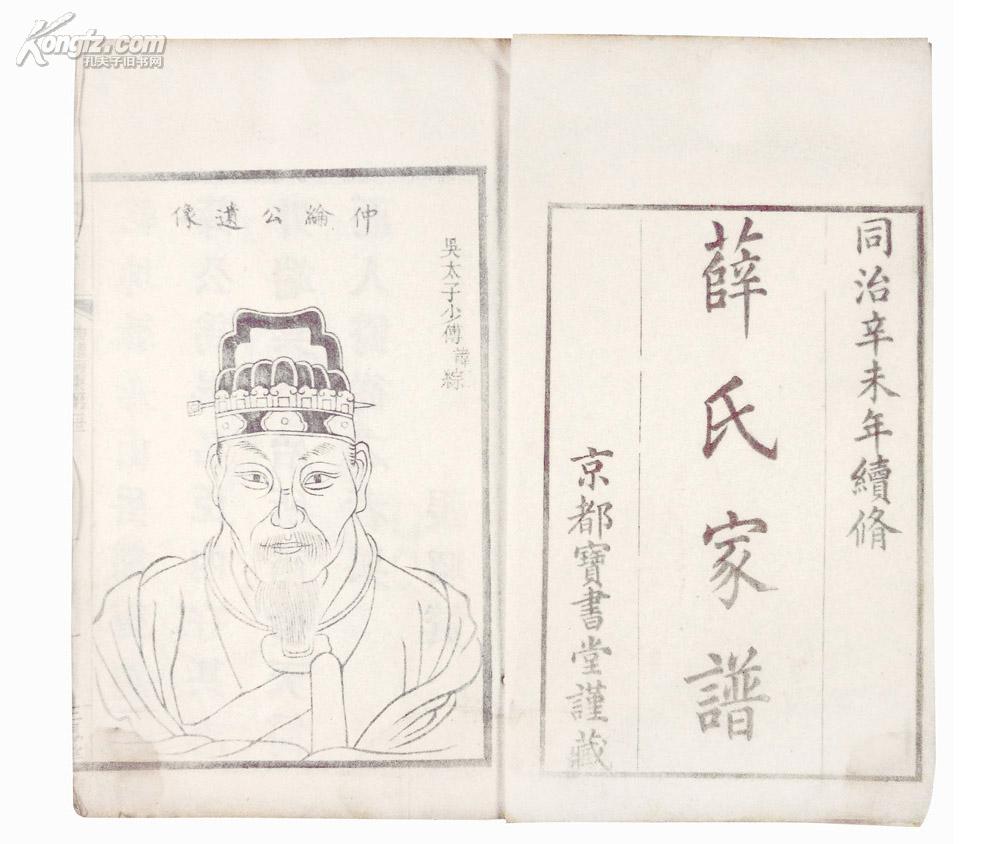 Kongfz.com
孔夫子旧书网
同治辛未年續脩
薛氏家譜
京都寶書堂謹藏
仲綸公遺像
吳太子少傅諱綜